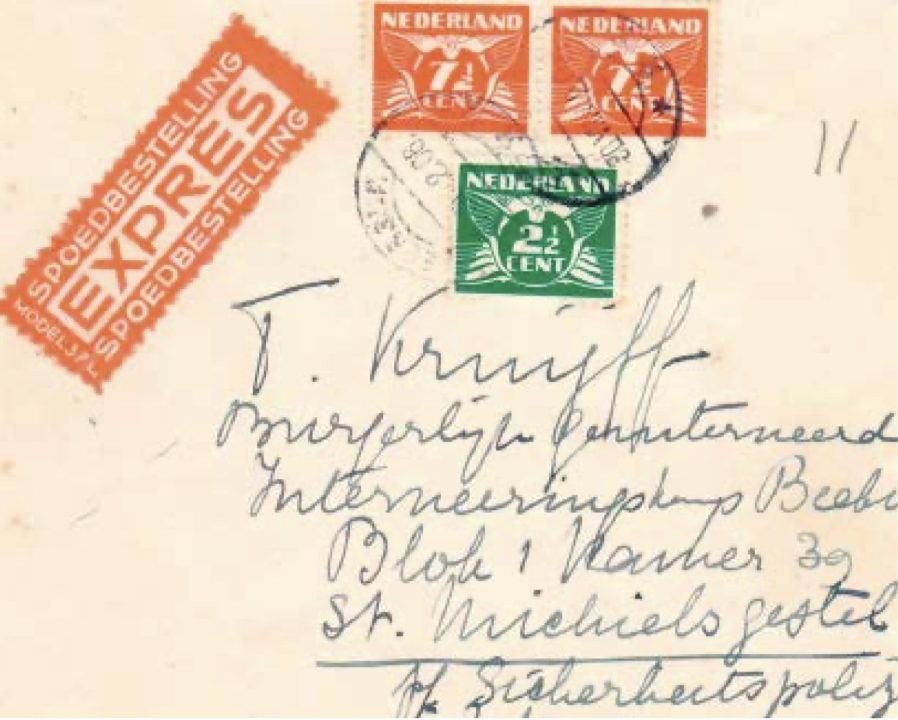 SPOEDBESTELLING
EXPRES
SPOEDBESTELLING
MODEL 37 L
NEDERLAND
7½
CENT
NEDERLAND
7½
CENT
NEDERLAND
2½
CENT
11
T. Kruijff
Burgerlijk Geinterneerd
Interneeringskamp Beek
Blok 1 Kamer 39
St. Michielsgestel
p/ Sicherheitspoliz